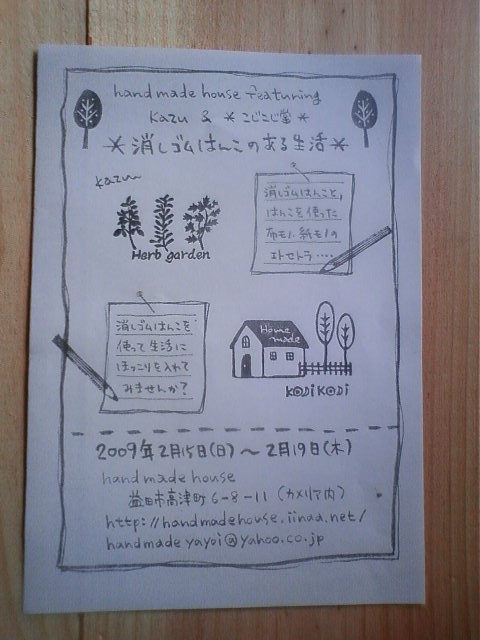 handmade house featuring
kazu & *こじこじ堂*
*消しゴムはんこのある生活*
kazu
Herb garden
消しゴムはんこと、
はんこを使った
布モノ、紙モノの
エトセトラ‥‥
消しゴムはんこを
使って生活に
ほっこりを入れて
みませんか?
Home made
KODiKODi
2009年2月15日(日)~2月19日(木)
handmade house
益田市高津町6-8-11(カメリア内)
http://handmadehouse.iinaa.net/
handmadeyayoi@yahoo.co.jp